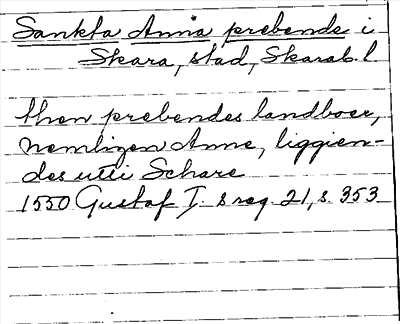 Sankta Anna prebende i
Skara, stad, Skarab. l
then prebendes landboer,
nemligen Anne, liggien-
des utti Schare
1550 Gustaf I. s reg. 21, s. 353